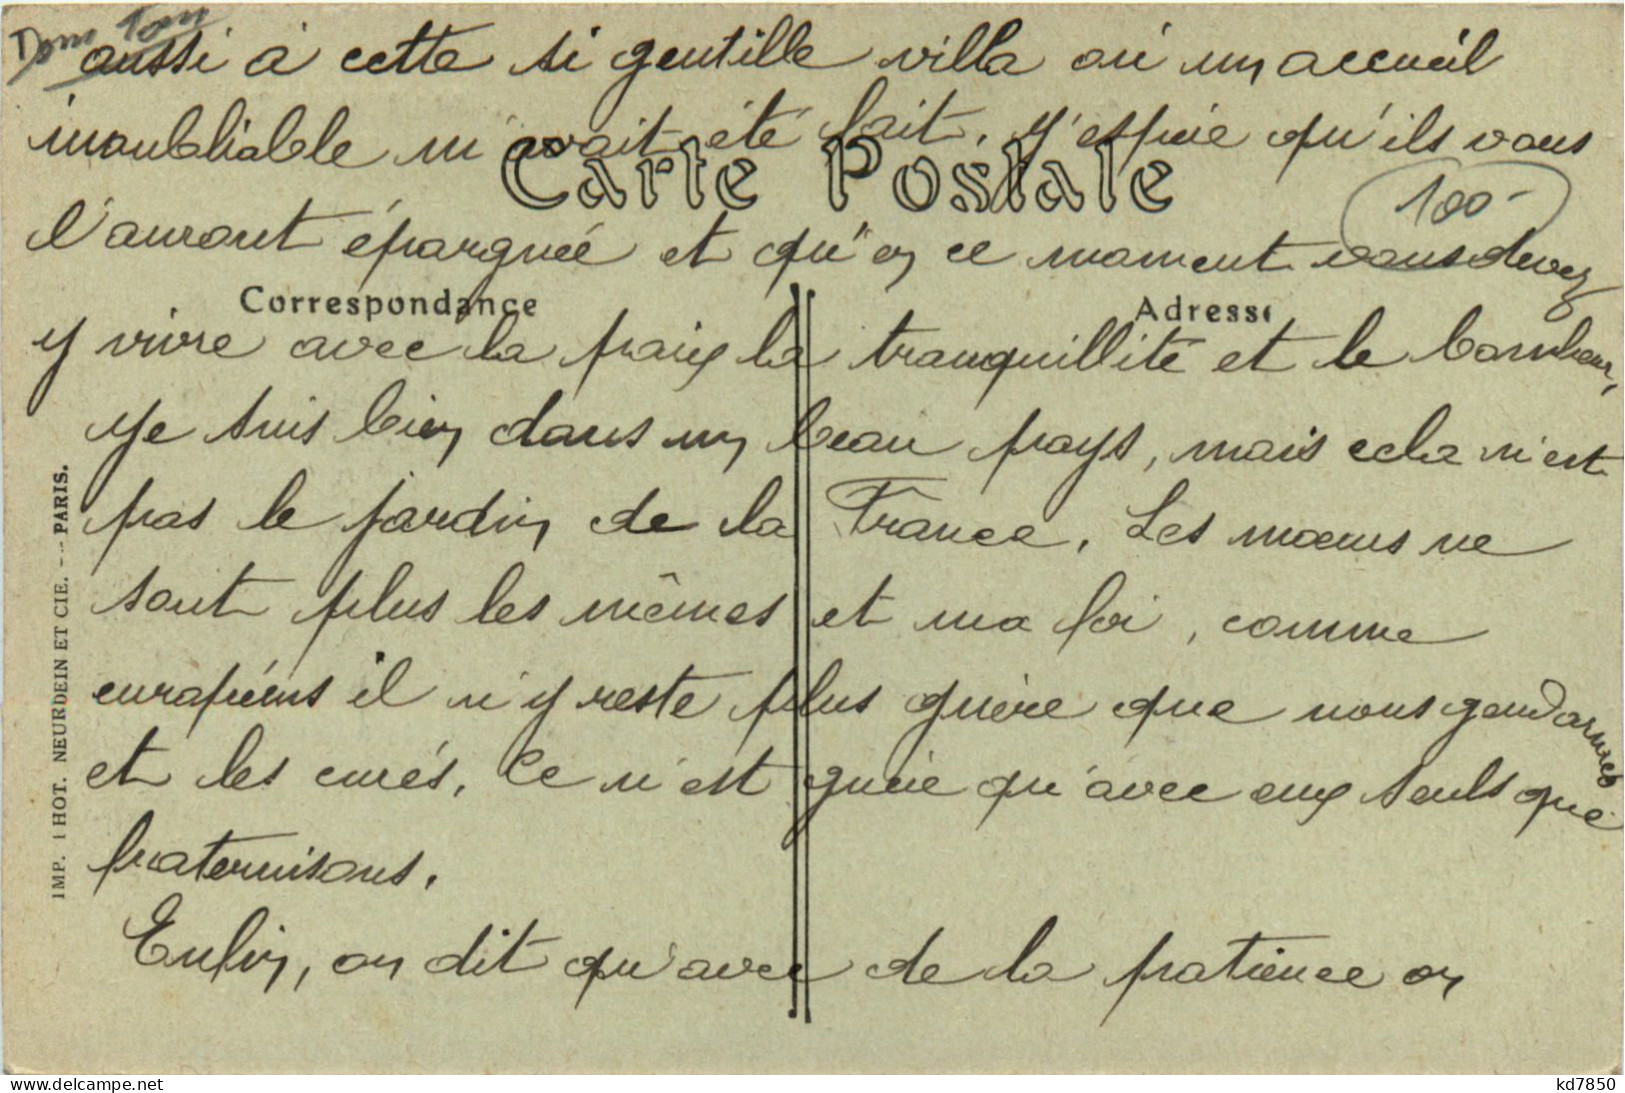 Dom Tom
aussi à cette si gentille villa où un accueil
inoubliable m'avait été fait. J'espère qu'ils vous
Carte Postale
100-
l'auront épargnée et qu'en ce moment vous devez
Correspondance
Adresse
y vivre avec la paix la tranquillité et le bonheur,
Je suis bien dans un beau pays, mais cela n'est
pas le jardin de la France. Les moeurs ne
sont plus les mêmes et ma foi, comme
européens il n'y reste plus guère que nous gendarmes
et les curés. Ce n'est guère qu'avec eux seuls que
fraternisons.
Enfin, on dit qu'avec de la patience on
IMP. PHOT. NEURDEIN ET CIE. -- PARIS.
www.delcampe.net
kd7850